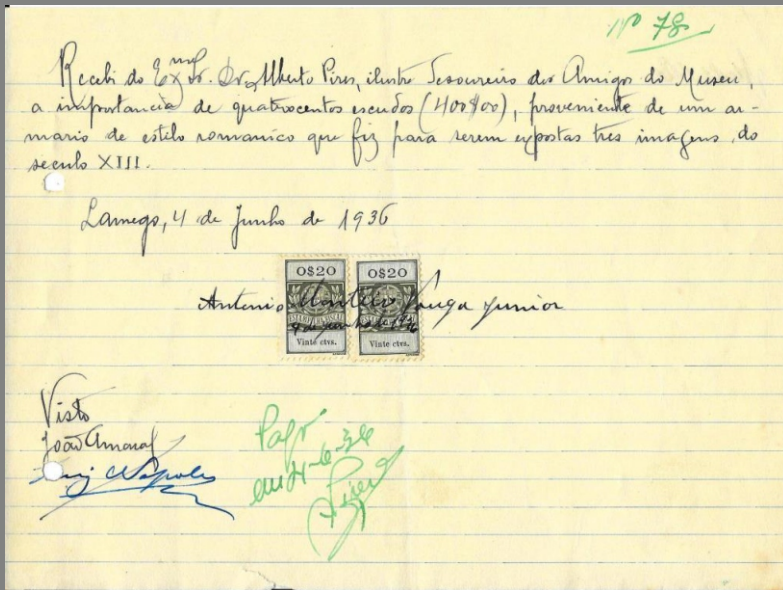 Nº 78
Recebi do Exmº Sr. Dr. Alberto Pires, ilustre Tesoureiro dos Amigos do Museu,
a importancia de quatrocentos escudos (400$00), proveniente de um ar-
mario de estilo romanico que fiz para serem expostas tres imagens do
seculo XIII.
Lamego, 4 de Junho de 1936
0$20 0$20
Antonio Monteiro Vouga Junior
4 de Junho de 1936
Vinte ctvs. Vinte ctvs.
Visto
João Amaral
Napoles
Pago
em 4-6-36
Pires